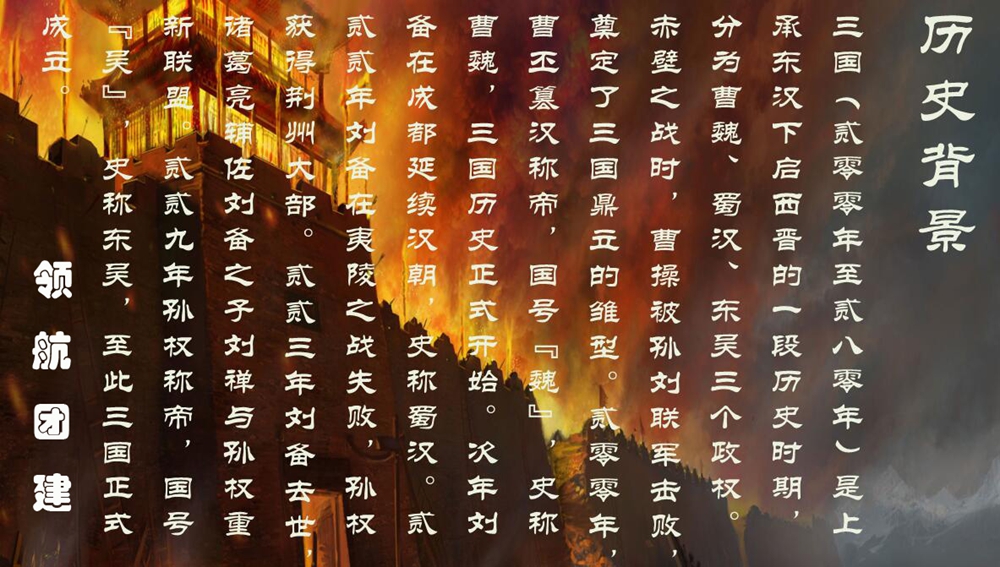 历史背景
三国（贰零零年至贰八零年）是上
承东汉下启西晋的一段历史时期，
分为曹魏、蜀汉、东吴三个政权。
赤壁之战时，曹操被孙刘联军击败，
奠定了三国鼎立的雏型。贰零零年，
曹丕篡汉称帝，国号『魏』，史称
曹魏，三国历史正式开始。次年刘
备在成都延续汉朝，史称蜀汉。贰
贰贰年刘备在夷陵之战失败，孙权
获得荆州大部。贰贰三年刘备去世，
诸葛亮辅佐刘备之子刘禅与孙权重
新联盟。贰贰九年孙权称帝，国号
『吴』，史称东吴，至此三国正式
成立。
领航团建